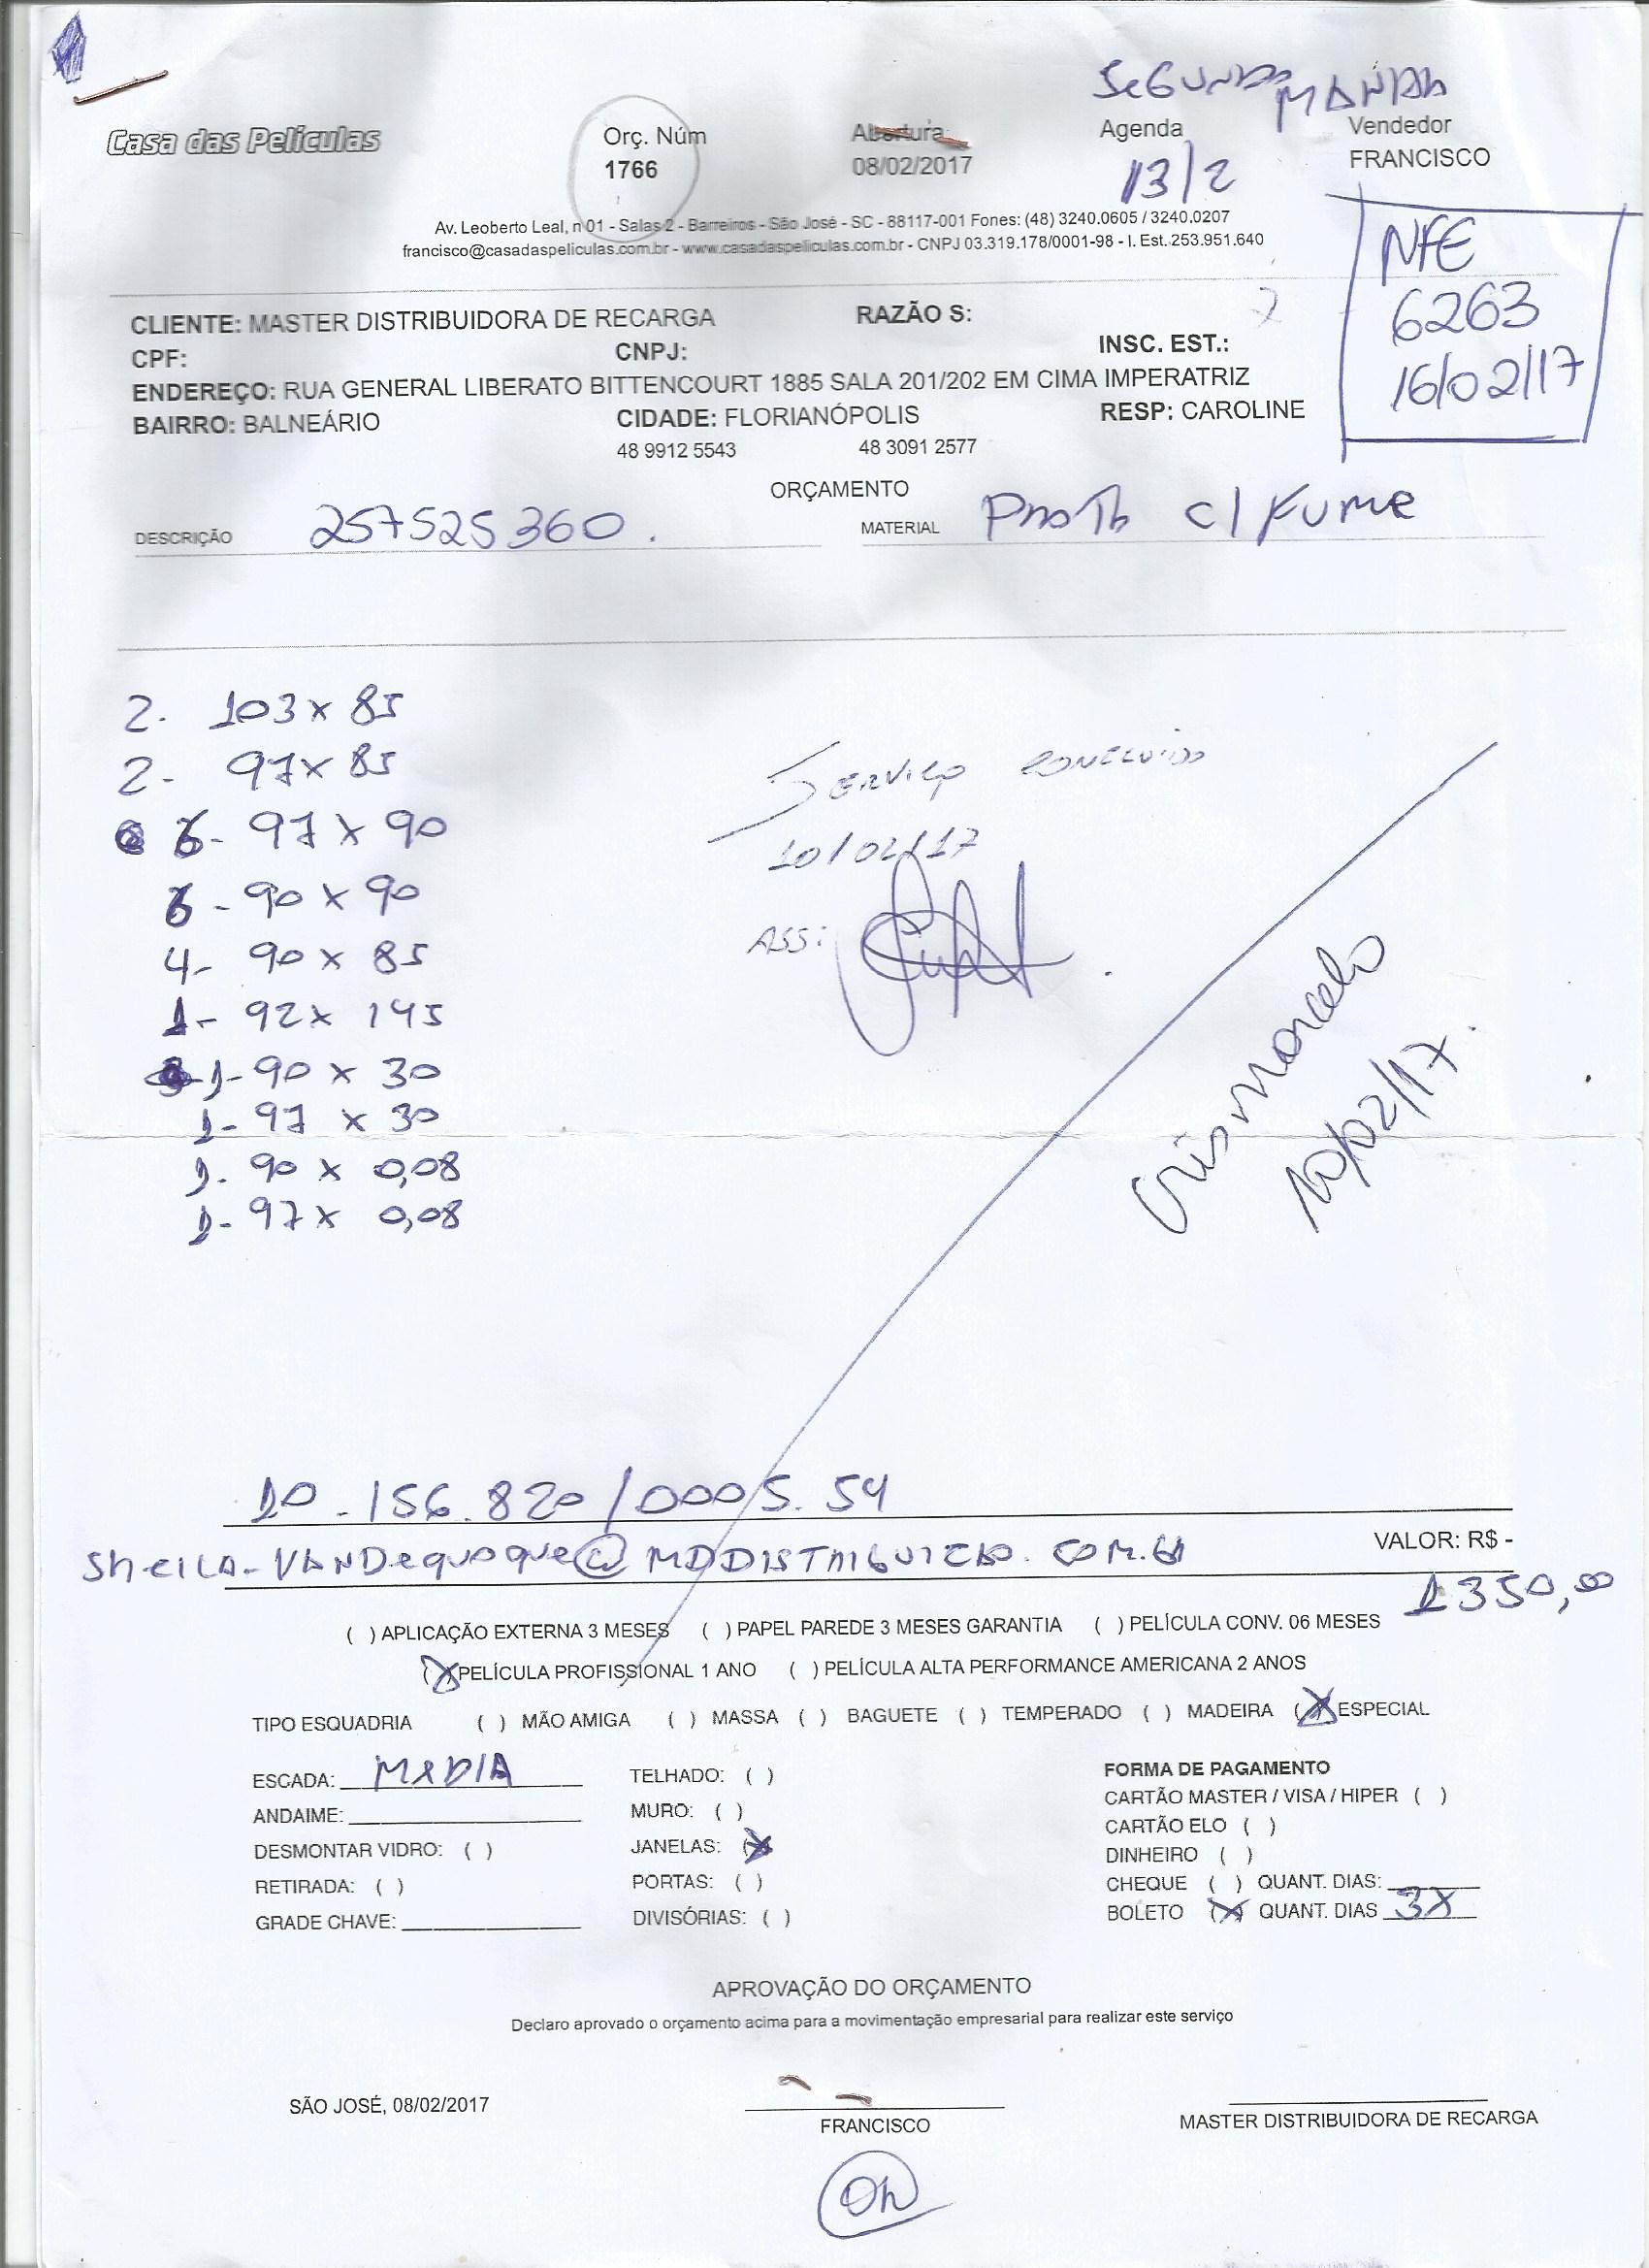 SEGUNDA MANHÃ
Casa das Películas
Orç. Núm Abertura Agenda Vendedor
1766 08/02/2017 13/2 FRANCISCO
Av. Leoberto Leal, n 01 - Salas 2 - Barreiros - São José - SC - 88117-001 Fones: (48) 3240.0605 / 3240.0207
francisco@casadaspeliculas.com.br - www.casadaspeliculas.com.br - CNPJ 03.319.178/0001-98 - I. Est. 253.951.640
NFE
6263
16/02/17
CLIENTE: MASTER DISTRIBUIDORA DE RECARGA RAZÃO S:
CPF: CNPJ: INSC. EST.:
ENDEREÇO: RUA GENERAL LIBERATO BITTENCOURT 1885 SALA 201/202 EM CIMA IMPERATRIZ
BAIRRO: BALNEÁRIO CIDADE: FLORIANÓPOLIS RESP: CAROLINE
48 9912 5543 48 3091 2577
ORÇAMENTO
DESCRIÇÃO 257525360. MATERIAL c/ FUME
2. 103 x 85
2- 97 x 85
6- 97 x 90
6- 90 x 90
4- 90 x 85
1- 92 x 145
1- 90 x 30
1- 97 x 30
1- 90 x 0,08
1- 97 x 0,08
SERVIÇO CONCLUIDO
10/02/17
ASS:
Crismarcelo
10/02/17.
10.156.820/0005.54
VALOR: R$ -
1350,00
( ) APLICAÇÃO EXTERNA 3 MESES ( ) PAPEL PAREDE 3 MESES GARANTIA ( ) PELÍCULA CONV. 06 MESES
(X) PELÍCULA PROFISSIONAL 1 ANO ( ) PELÍCULA ALTA PERFORMANCE AMERICANA 2 ANOS
TIPO ESQUADRIA ( ) MÃO AMIGA ( ) MASSA ( ) BAGUETE ( ) TEMPERADO ( ) MADEIRA (X) ESPECIAL
ESCADA: MEDIA
ANDAIME:
DESMONTAR VIDRO: ( )
RETIRADA: ( )
GRADE CHAVE:
TELHADO: ( )
MURO: ( )
JANELAS: (X)
PORTAS: ( )
DIVISÓRIAS: ( )
FORMA DE PAGAMENTO
CARTÃO MASTER / VISA / HIPER ( )
CARTÃO ELO ( )
DINHEIRO ( )
CHEQUE ( ) QUANT. DIAS:
BOLETO (X) QUANT. DIAS 3X
APROVAÇÃO DO ORÇAMENTO
Declaro aprovado o orçamento acima para a movimentação empresarial para realizar este serviço
SÃO JOSÉ, 08/02/2017
FRANCISCO
MASTER DISTRIBUIDORA DE RECARGA
Ok